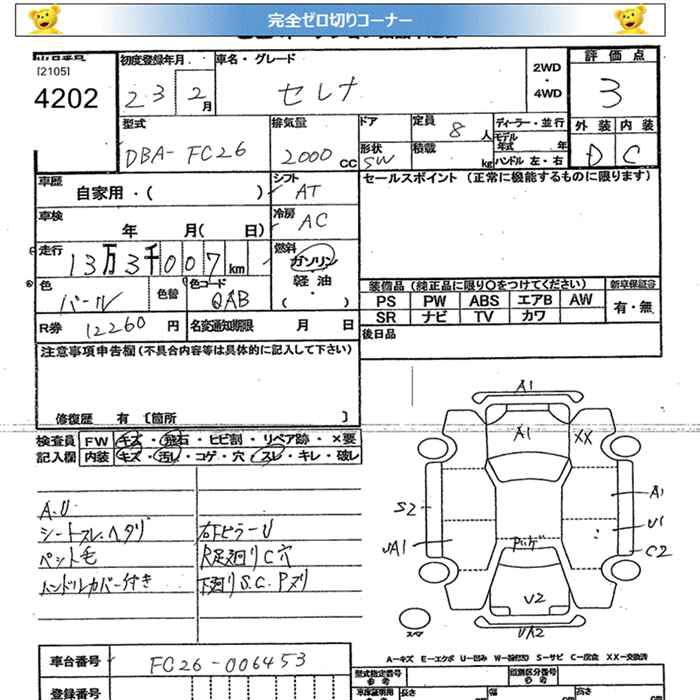 完全ゼロ切りコーナー
[2105]
4202
初度登録年月 車名・グレード 2WD ・ 4WD 評価点
23 2月 セレナ 3
型式 排気量 ドア 定員 8人 ディーラー・並行 外装 内装
DBA-FC26 2000cc 形状 SW 積載 kg モデル年式 年 ハンドル 左・右 D C
車歴 自家用・( ) シフト AT セールスポイント (正常に機能するものに限ります)
車検 年 月( 日) 冷房 AC
走行 13万3千007km 燃料 ガソリン・軽油・( )
色 パール 色替 色コード QAB 装備品 (純正品に限り○をつけてください) 新車保証書
PS PW ABS エアB AW 有・無
SR ナビ TV カワ
R券 12260円 名変通知期限 月 日 後日品
注意事項申告欄(不具合内容等は具体的に記入して下さい)
修復歴 有 〔箇所 〕
検査員 FW キズ・飛石・ヒビ割・リペア跡・×要
記入欄 内装 キズ・汚レ・コゲ・穴・スレ・キレ・破レ
A.U
シートスレ.ヘタリ 右Fピラー U
ペット毛 R足廻りC穴
ハンドルカバー付き 下廻りS.C.Pヌリ
A1
A1 XX
A1
S2
U1
UA1 C2
U2
スペア UA2
A―キズ E―エクボ U―凹み W―補修跡 S―サビ C―腐食 XX―交換済
車台番号 FC26-006453
型式指定番号 参考 類別区分番号 参考
登録番号 長さ 幅 高さ